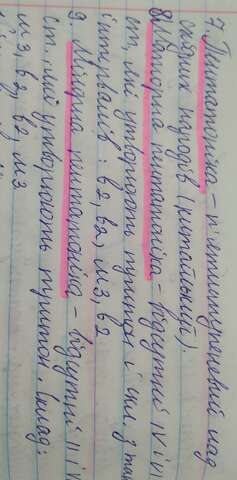 7. Пентатоніка – п'ятиступеневий лад
східних народів (китайський).
8. Мажорна пентатоніка – відсутні IV і VI
ст., які утворюють тритон і скл. з
інтервалів: в2, в2, м3, в2
9. Мінорна пентатоніка – відсутні II і
ст., які утворюють тритон. Склад:
м3, в2, в2, м3